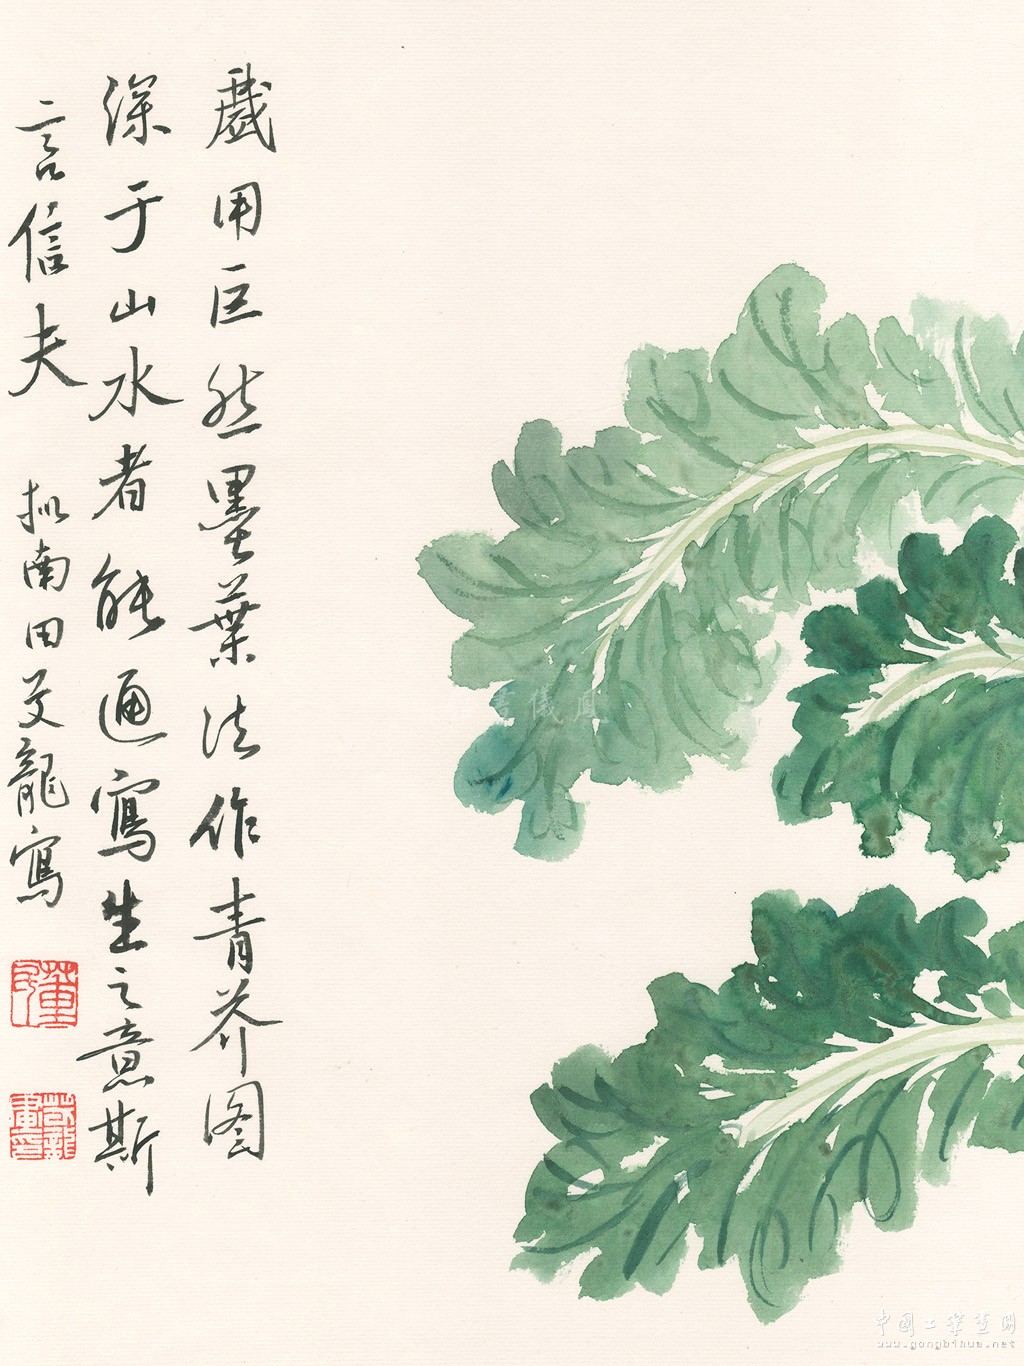 戲用巨然墨葉法作青芥图
深于山水者能通寫生之意斯
言信夫 拟南田 艾龍寫
中国工笔画网
www.gongbihua.net